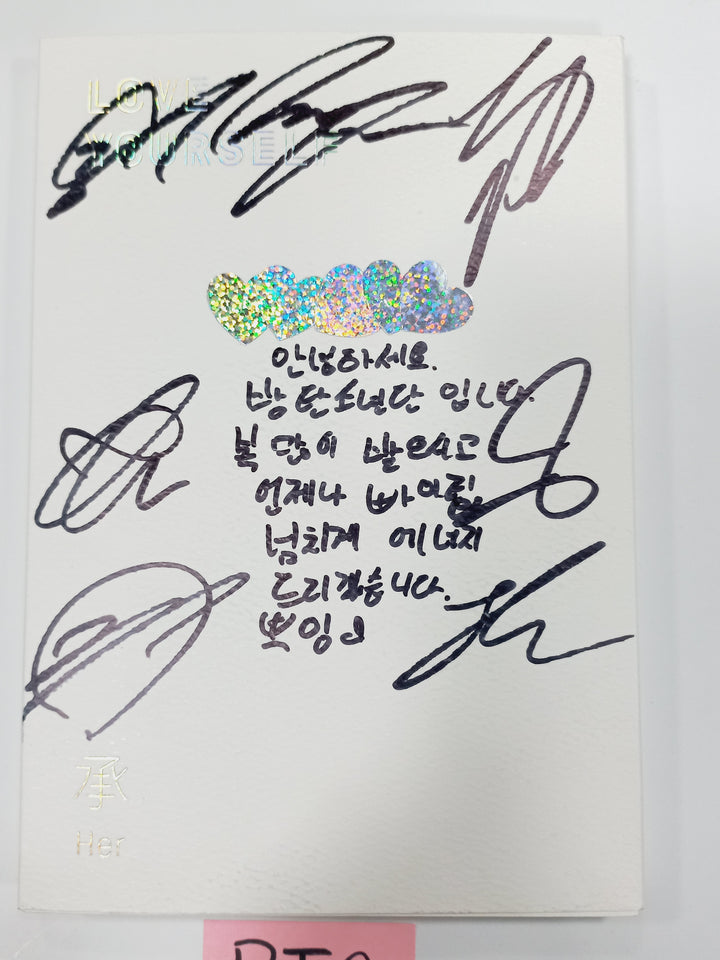 LOVE
YOURSELF
안녕하세요.
방탄소년단 입니다.
복 많이 받으시고
언제나
넘치게 에너지
드리겠습니다.
뾰잉
承
Her
BTS